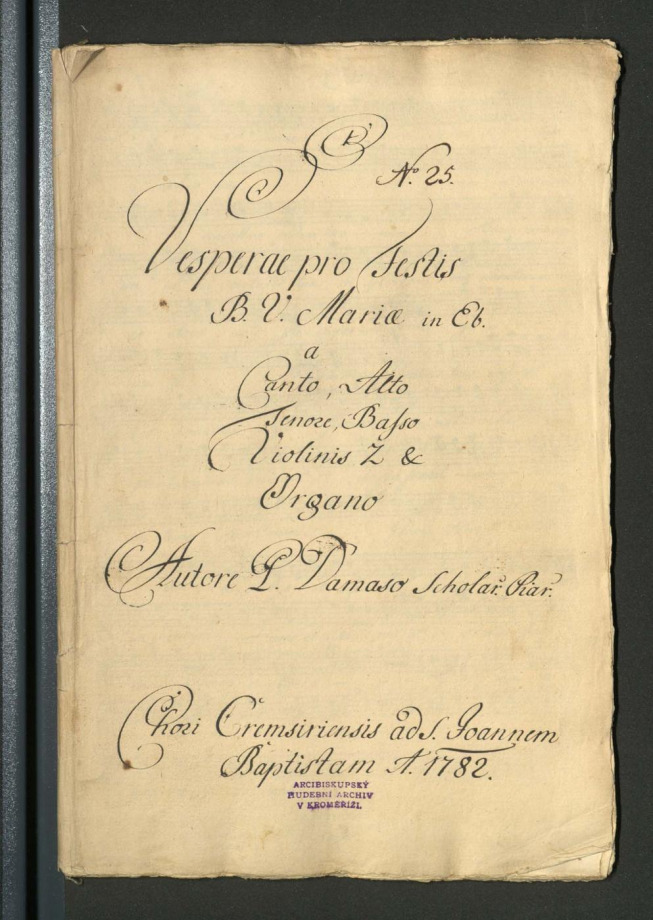 B
Nº. 25.
Vesperae pro Festis
B. V. Mariæ in Eb.
a
Canto, Alto
Tenore, Basso
Violinis 2 &
Organo
Autore P. Damaso Scholar. Piar.
Chori Cremsiriensis ad S. Joannem
Baptistam A. 1782.
ARCIBISKUPSKÝ
HUDEBNÍ ARCHIV
V KROMĚŘÍŽI.